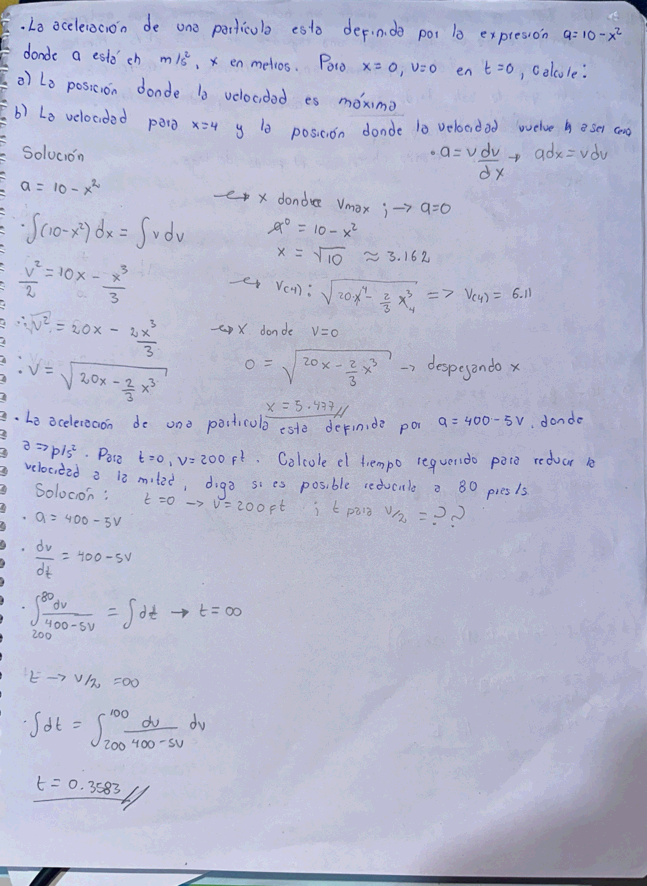 · La aceleración de una partícula esta definida por la expresión a=10-x²
donde a está en m/s², x en metros. Para x=0, v=0 en t=0, calcule:
a) La posición donde la velocidad es máxima
b) La velocidad para x=4 y la posición donde la velocidad vuelve a ser cero
Solución
· a = v dv/dx → adx = vdv
a = 10 - x²
↪ x donde Vmax ; → a=0
a⁰ = 10 - x²
x = √10 ≈ 3.162
· ∫(10-x²) dx = ∫ v dv
v²/2 = 10x - x³/3
↪ V(4): √(20x⁴ - 2/3 x³₄) => V(4) = 6.11
∴ v² = 20x - 2x³/3
↪ x donde V=0
0 = √(20x - 2/3 x³) → despejando x
∴ V = √(20x - 2/3 x³)
x = 5.477//
· La aceleración de una partícula esta definida por a = 400-5V, donde
a => p/s². Para t=0, v=200 ft. Calcule el tiempo requerido para reducir la
velocidad a la mitad, diga si es posible reducirla a 80 pies/s
Solución: t=0 → v=200ft ; t para v/2 = ??
· a = 400-5V
· dv/dt = 400-5V
· ∫²⁰⁰₈₀ dv/400-5V = ∫dt → t=∞
t → v/2 = ∞
· ∫dt = ∫₂₀₀¹⁰⁰ dv/400-5V dv
t = 0.3583//